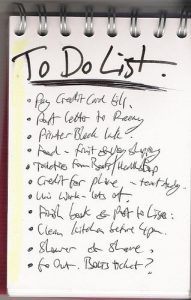 To Do List.
• Pay Credit Card bill.
• Post letter to
• Printer Black Ink.
• Food - fruit & veg
• Toiletries from Boots/
• Credit for phone -
• Uni Work - lots of.
• Finish book & post to Lisa.
• Clean kitchen before 7pm.
• Shower & Shave.
• Go Out. ticket?